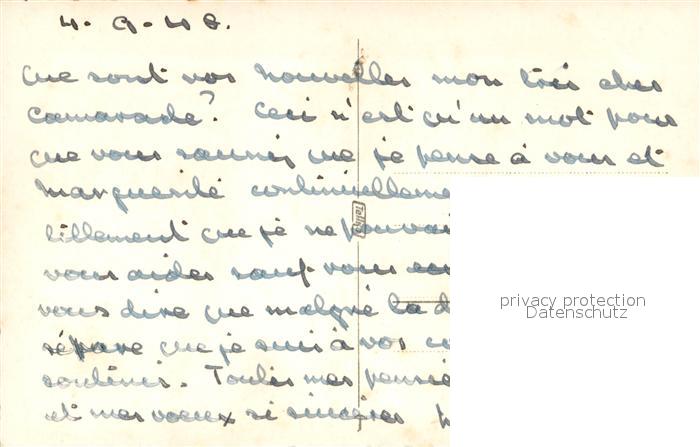 4-9-48.
que sont vos nouvelles mon très cher
camarade? Ceci n'est qu'un mot pour
que vous sauriez que je pense à vous et
marguerite continuelleme
tillement que je ne pouvai
vous aider sauf vous
vous dire que malgré la d
sépare que je suis à vos
soutenir. Toutes mes pensé
et mes voeux si sincères p
Tellko
privacy protection
Datenschutz